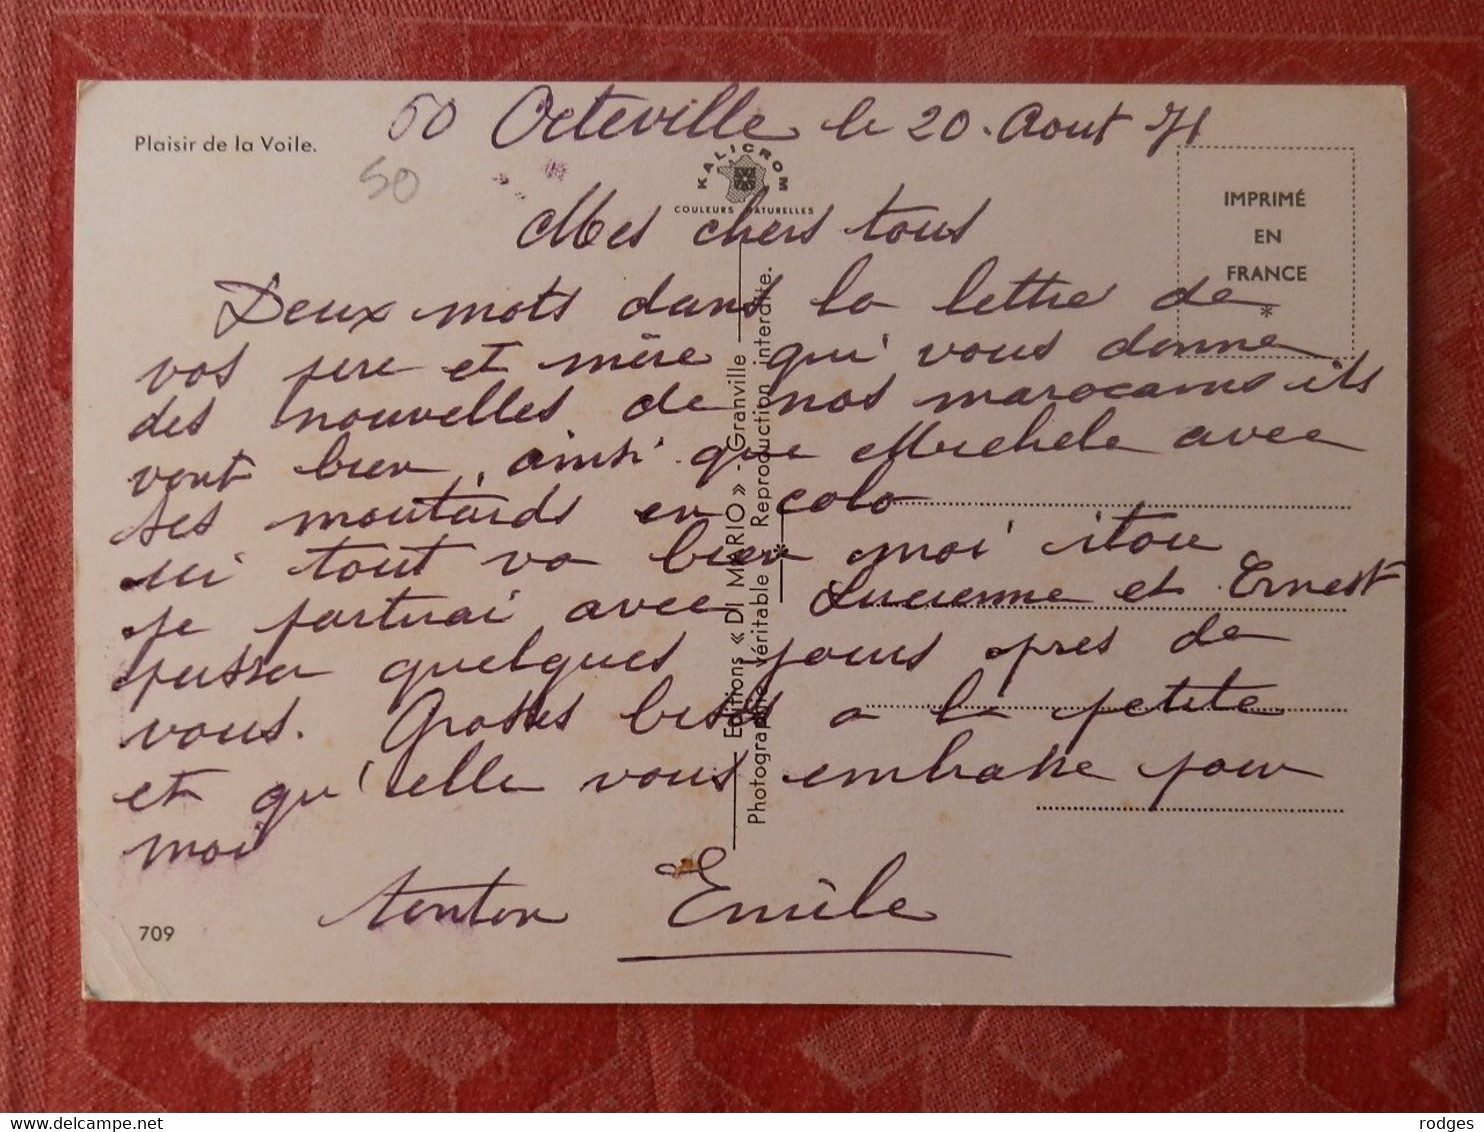 50 Octeville le 20. Aout 71
Plaisir de la Voile.
50
KALICROM
COULEURS NATURELLES
IMPRIMÉ
EN
FRANCE
*
Mes chers tous
Deux mots dans la lettre de
vos pere et mère qui vous donne
des nouvelles de nos marocains ils
vont bien, ainsi que Michele avec
ses moutards en colo
ici tout va bien moi itou
je partirai avec Lucienne et Ernest
passer quelques jours pres de
vous. Grosses bises a la petite
et qu'elle vous embrasse pour
moi
tonton Emile
Editions « DI MARIO » - Granville
Photographie véritable * Reproduction interdite.
709
delcampe.net
rodges